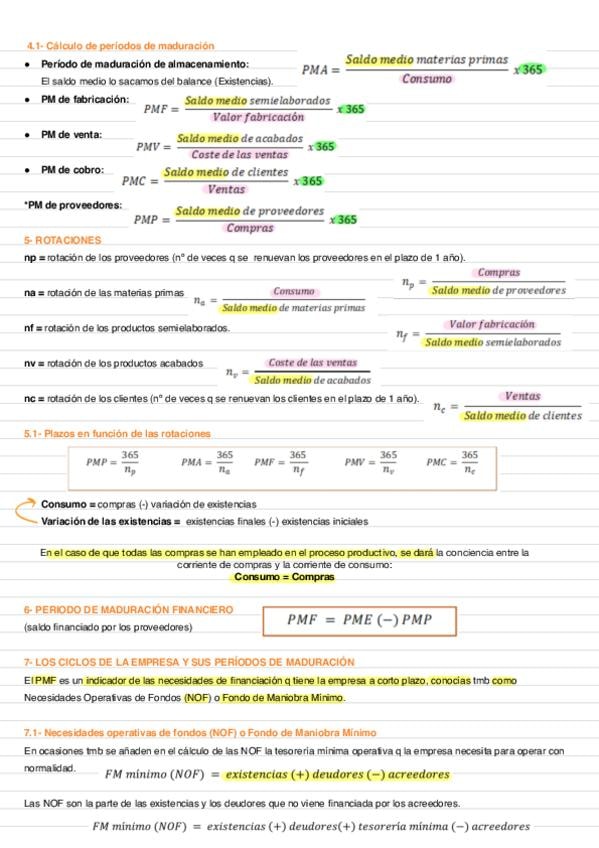 4.1- Cálculo de períodos de maduración
● Período de maduración de almacenamiento:
El saldo medio lo sacamos del balance (Existencias).
PMA = Saldo medio materias primas / Consumo x 365
● PM de fabricación: PMF = Saldo medio semielaborados / Valor fabricación x 365
● PM de venta: PMV = Saldo medio de acabados / Coste de las ventas x 365
● PM de cobro: PMC = Saldo medio de clientes / Ventas x 365
*PM de proveedores: PMP = Saldo medio de proveedores / Compras x 365
5- ROTACIONES
np = rotación de los proveedores (nº de veces q se renuevan los proveedores en el plazo de 1 año).
n_p = Compras / Saldo medio de proveedores
na = rotación de las materias primas n_a = Consumo / Saldo medio de materias primas
nf = rotación de los productos semielaborados. n_f = Valor fabricación / Saldo medio semielaborados
nv = rotación de los productos acabados n_v = Coste de las ventas / Saldo medio de acabados
nc = rotación de los clientes (nº de veces q se renuevan los clientes en el plazo de 1 año). n_c = Ventas / Saldo medio de clientes
5.1- Plazos en función de las rotaciones
PMP = 365 / n_p PMA = 365 / n_a PMF = 365 / n_f PMV = 365 / n_v PMC = 365 / n_c
Consumo = compras (-) variación de existencias
Variación de las existencias = existencias finales (-) existencias iniciales
En el caso de que todas las compras se han empleado en el proceso productivo, se dará la conciencia entre la
corriente de compras y la corriente de consumo:
Consumo = Compras
6- PERIODO DE MADURACIÓN FINANCIERO
(saldo financiado por los proveedores)
PMF = PME (−) PMP
7- LOS CICLOS DE LA EMPRESA Y SUS PERÍODOS DE MADURACIÓN
El PMF es un indicador de las necesidades de financiación q tiene la empresa a corto plazo, conocias tmb como
Necesidades Operativas de Fondos (NOF) o Fondo de Maniobra Mínimo.
7.1- Necesidades operativas de fondos (NOF) o Fondo de Maniobra Mínimo
En ocasiones tmb se añaden en el cálculo de las NOF la tesorería mínima operativa q la empresa necesita para operar con
normalidad. FM mínimo (NOF) = existencias (+) deudores (−) acreedores
Las NOF son la parte de las existencias y los deudores que no viene financiada por los acreedores.
FM mínimo (NOF) = existencias (+) deudores(+) tesorería mínima (−) acreedores